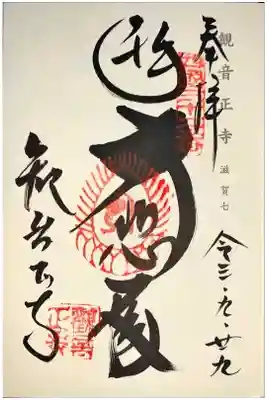 奉拝
観音正寺 滋賀七
令三・九・廿九
大悲殿
観音正寺